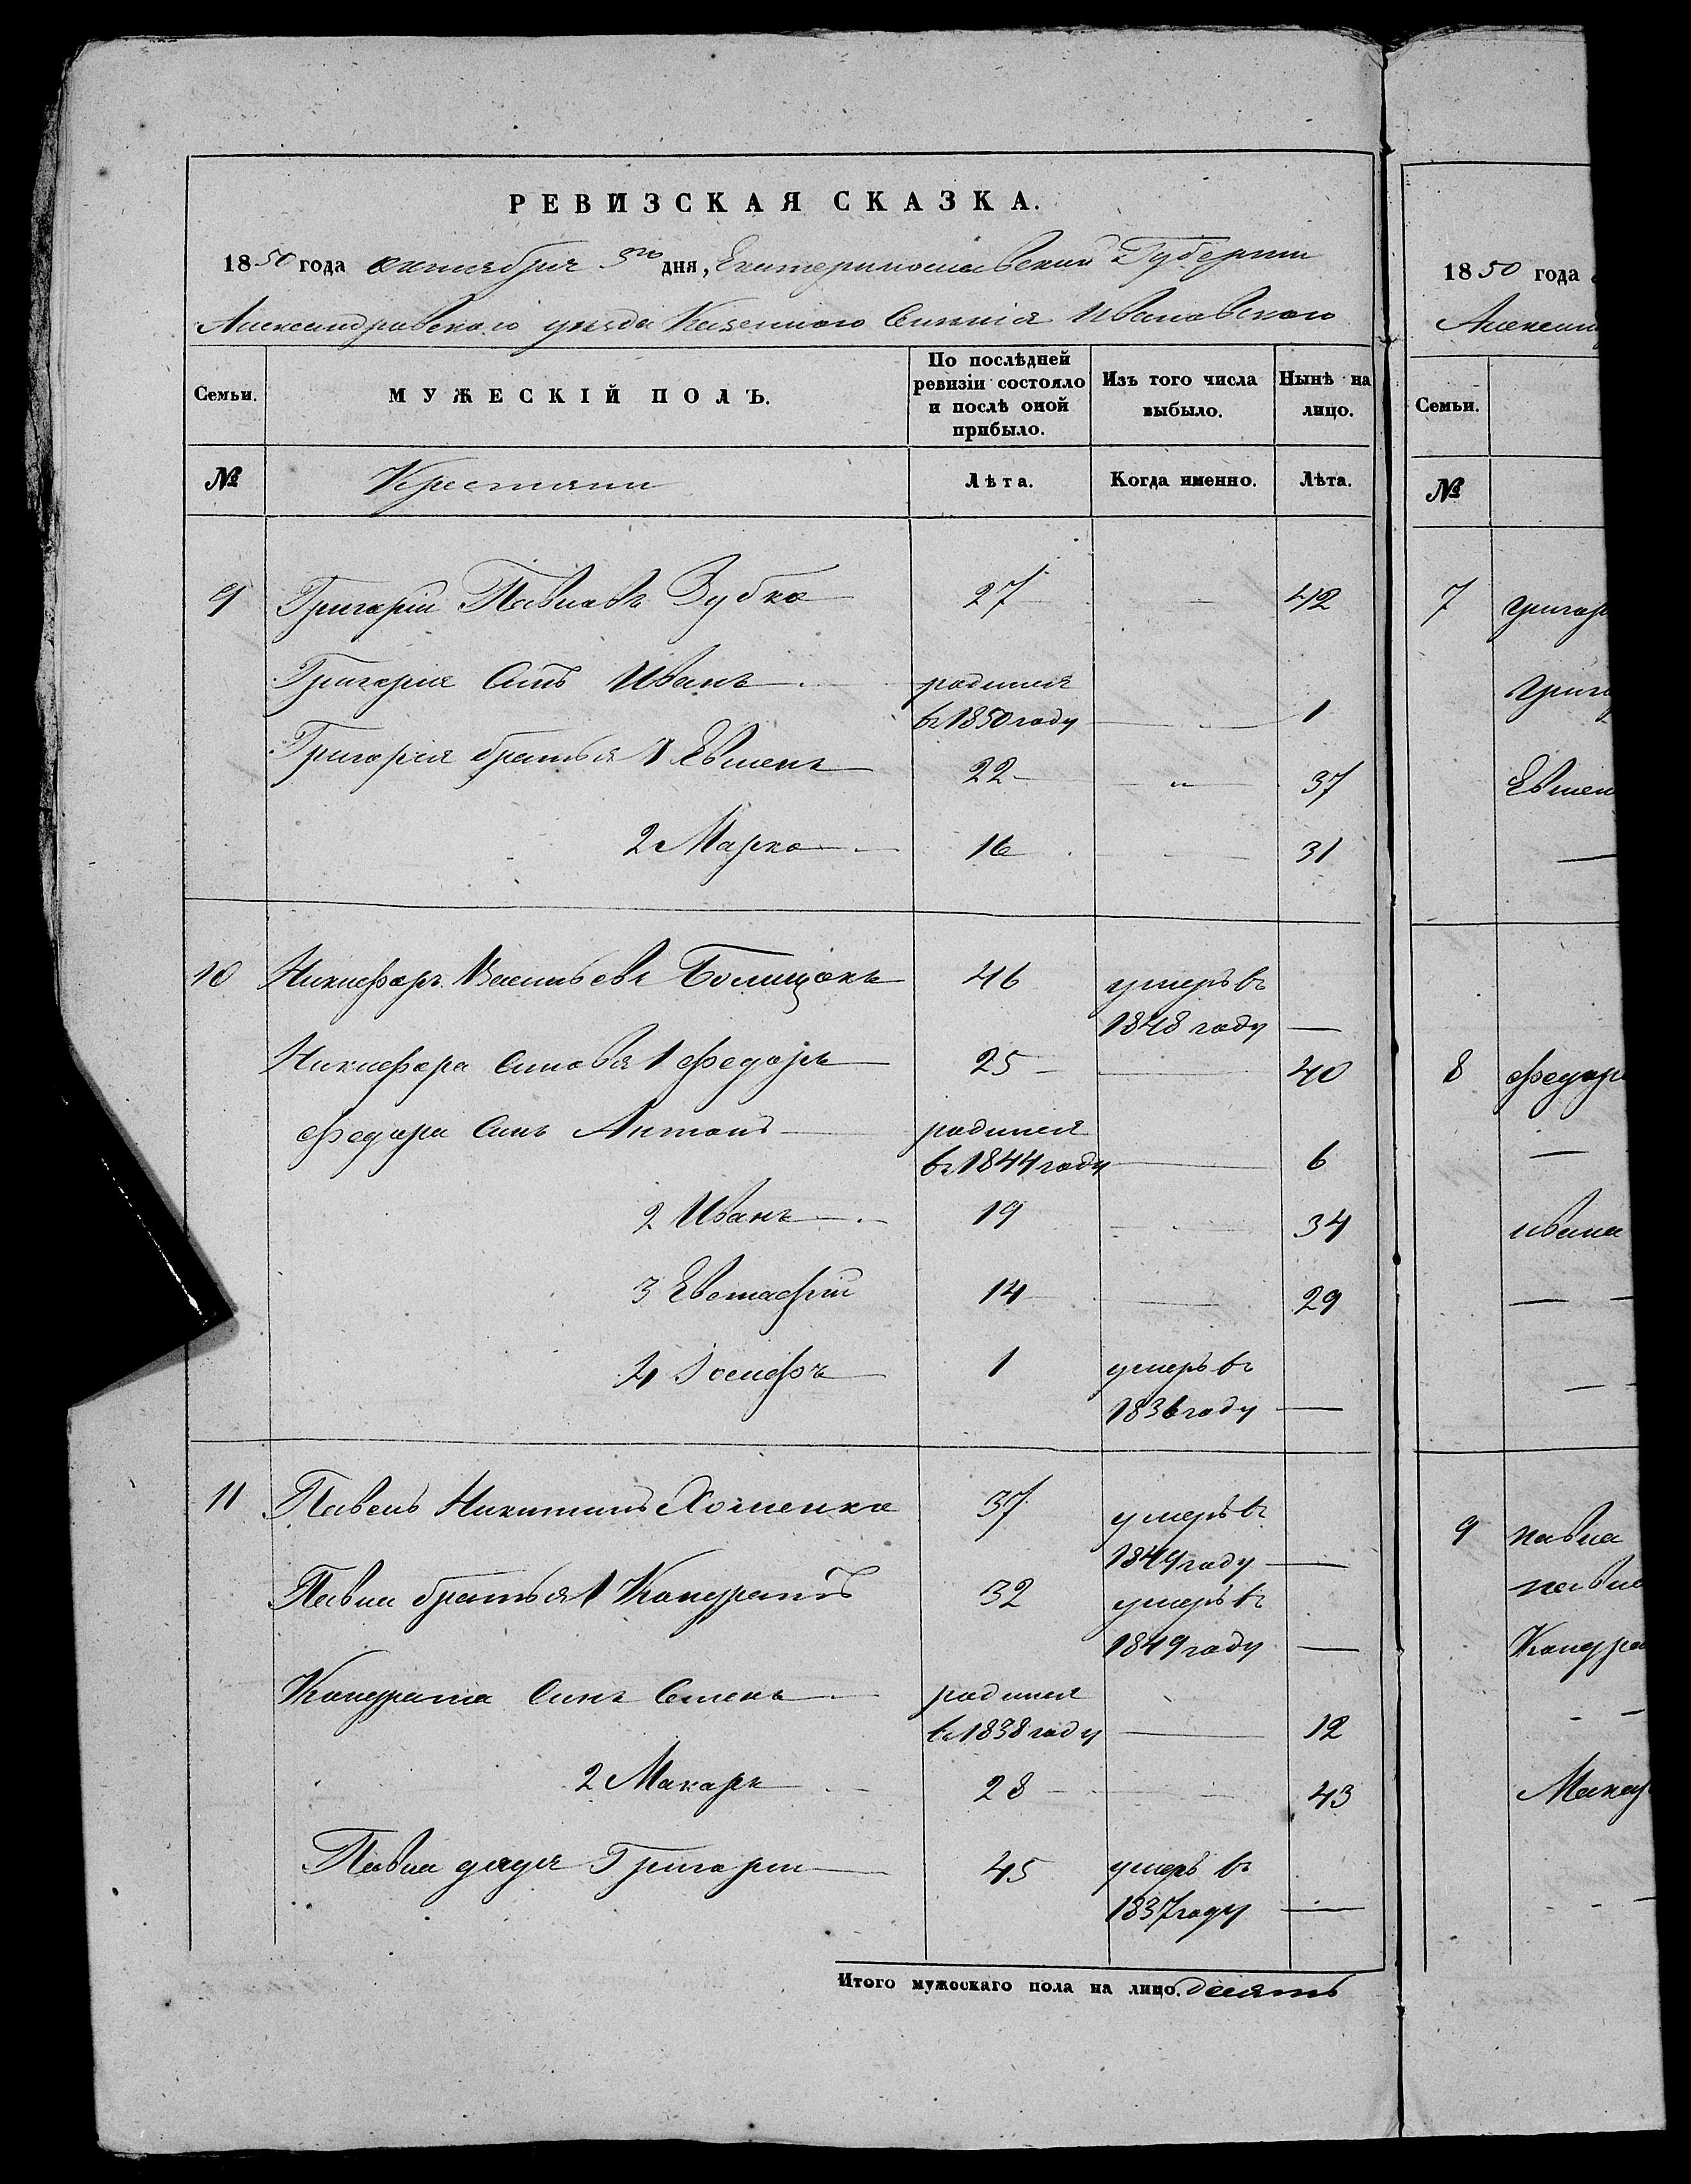 РЕВИЗСКАЯ СКАЗКА.
1850 года октября 3го дня, Екатеринославской Губернии
Александровского уезда Казенного Селенія Ивановского
Семьи.
МУЖЕСКІЙ ПОЛЪ.
По послѣдней ревизіи состояло и послѣ оной прибыло.
Изъ того числа выбыло.
Нынѣ на лицо.
№ Крестяни Лѣта. Когда именно. Лѣта.
9 Григорій Павловъ Зубко 27 — 42
Григорія Синъ Иванъ родился
въ 1850 году — 1
Григорія братья 1 Евменъ 22 — " — 37
2 Марко 16 — 31
10 Никифоръ Васильевъ 46 умеръ въ
1848 году —
Никифора Синовя 1 Федоръ 25 — 40
Федора Синъ Антонъ родился
въ 1844 году — 6
2 Иванъ 19 — 34
3 Евстафій 14 — 29
4 Іосифъ 1 умеръ въ
1836 году —
11 Павелъ Никитинъ Хоменко 37 умеръ въ
1844 году —
Павла братья 1 Кондратъ 32 умеръ въ
1849 году —
Кондрата Синъ Семенъ родился
въ 1838 году — 12
2 Макаръ 28 — 43
Павла дядя Григори 45 умеръ въ
1837 году —
Итого мужескаго пола на лицо. десять
1850 года
Семьи.
№
7
8
Ивана
9 Павла